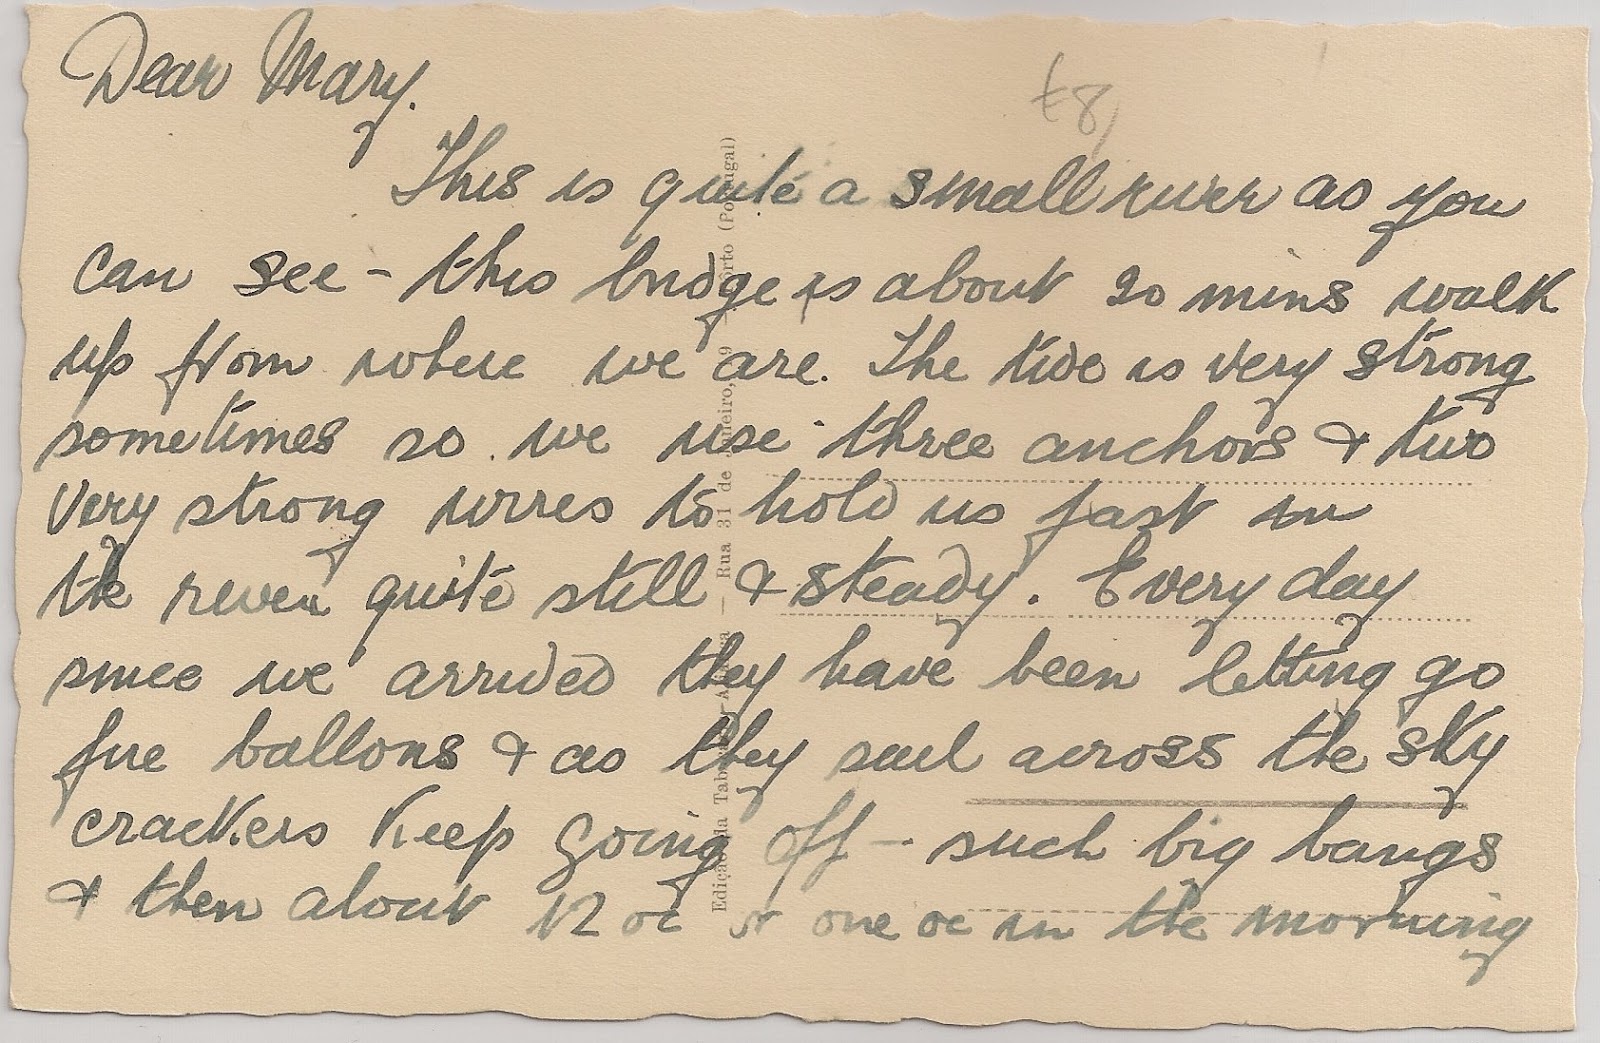 Dear Mary.
£8/
This is quite a small river as you
can see - this bridge is about 20 mins walk
up from where we are. The tide is very strong
sometimes so we use three anchors & two
very strong wires to hold us fast in
the river quite still & steady. Every day
since we arrived they have been letting go
fire ballons & as they sail across the sky
crackers keep going off - such big bangs
& then about 12 oc or one oc in the morning
Rua 31 de Janeiro, 9 (Portugal)